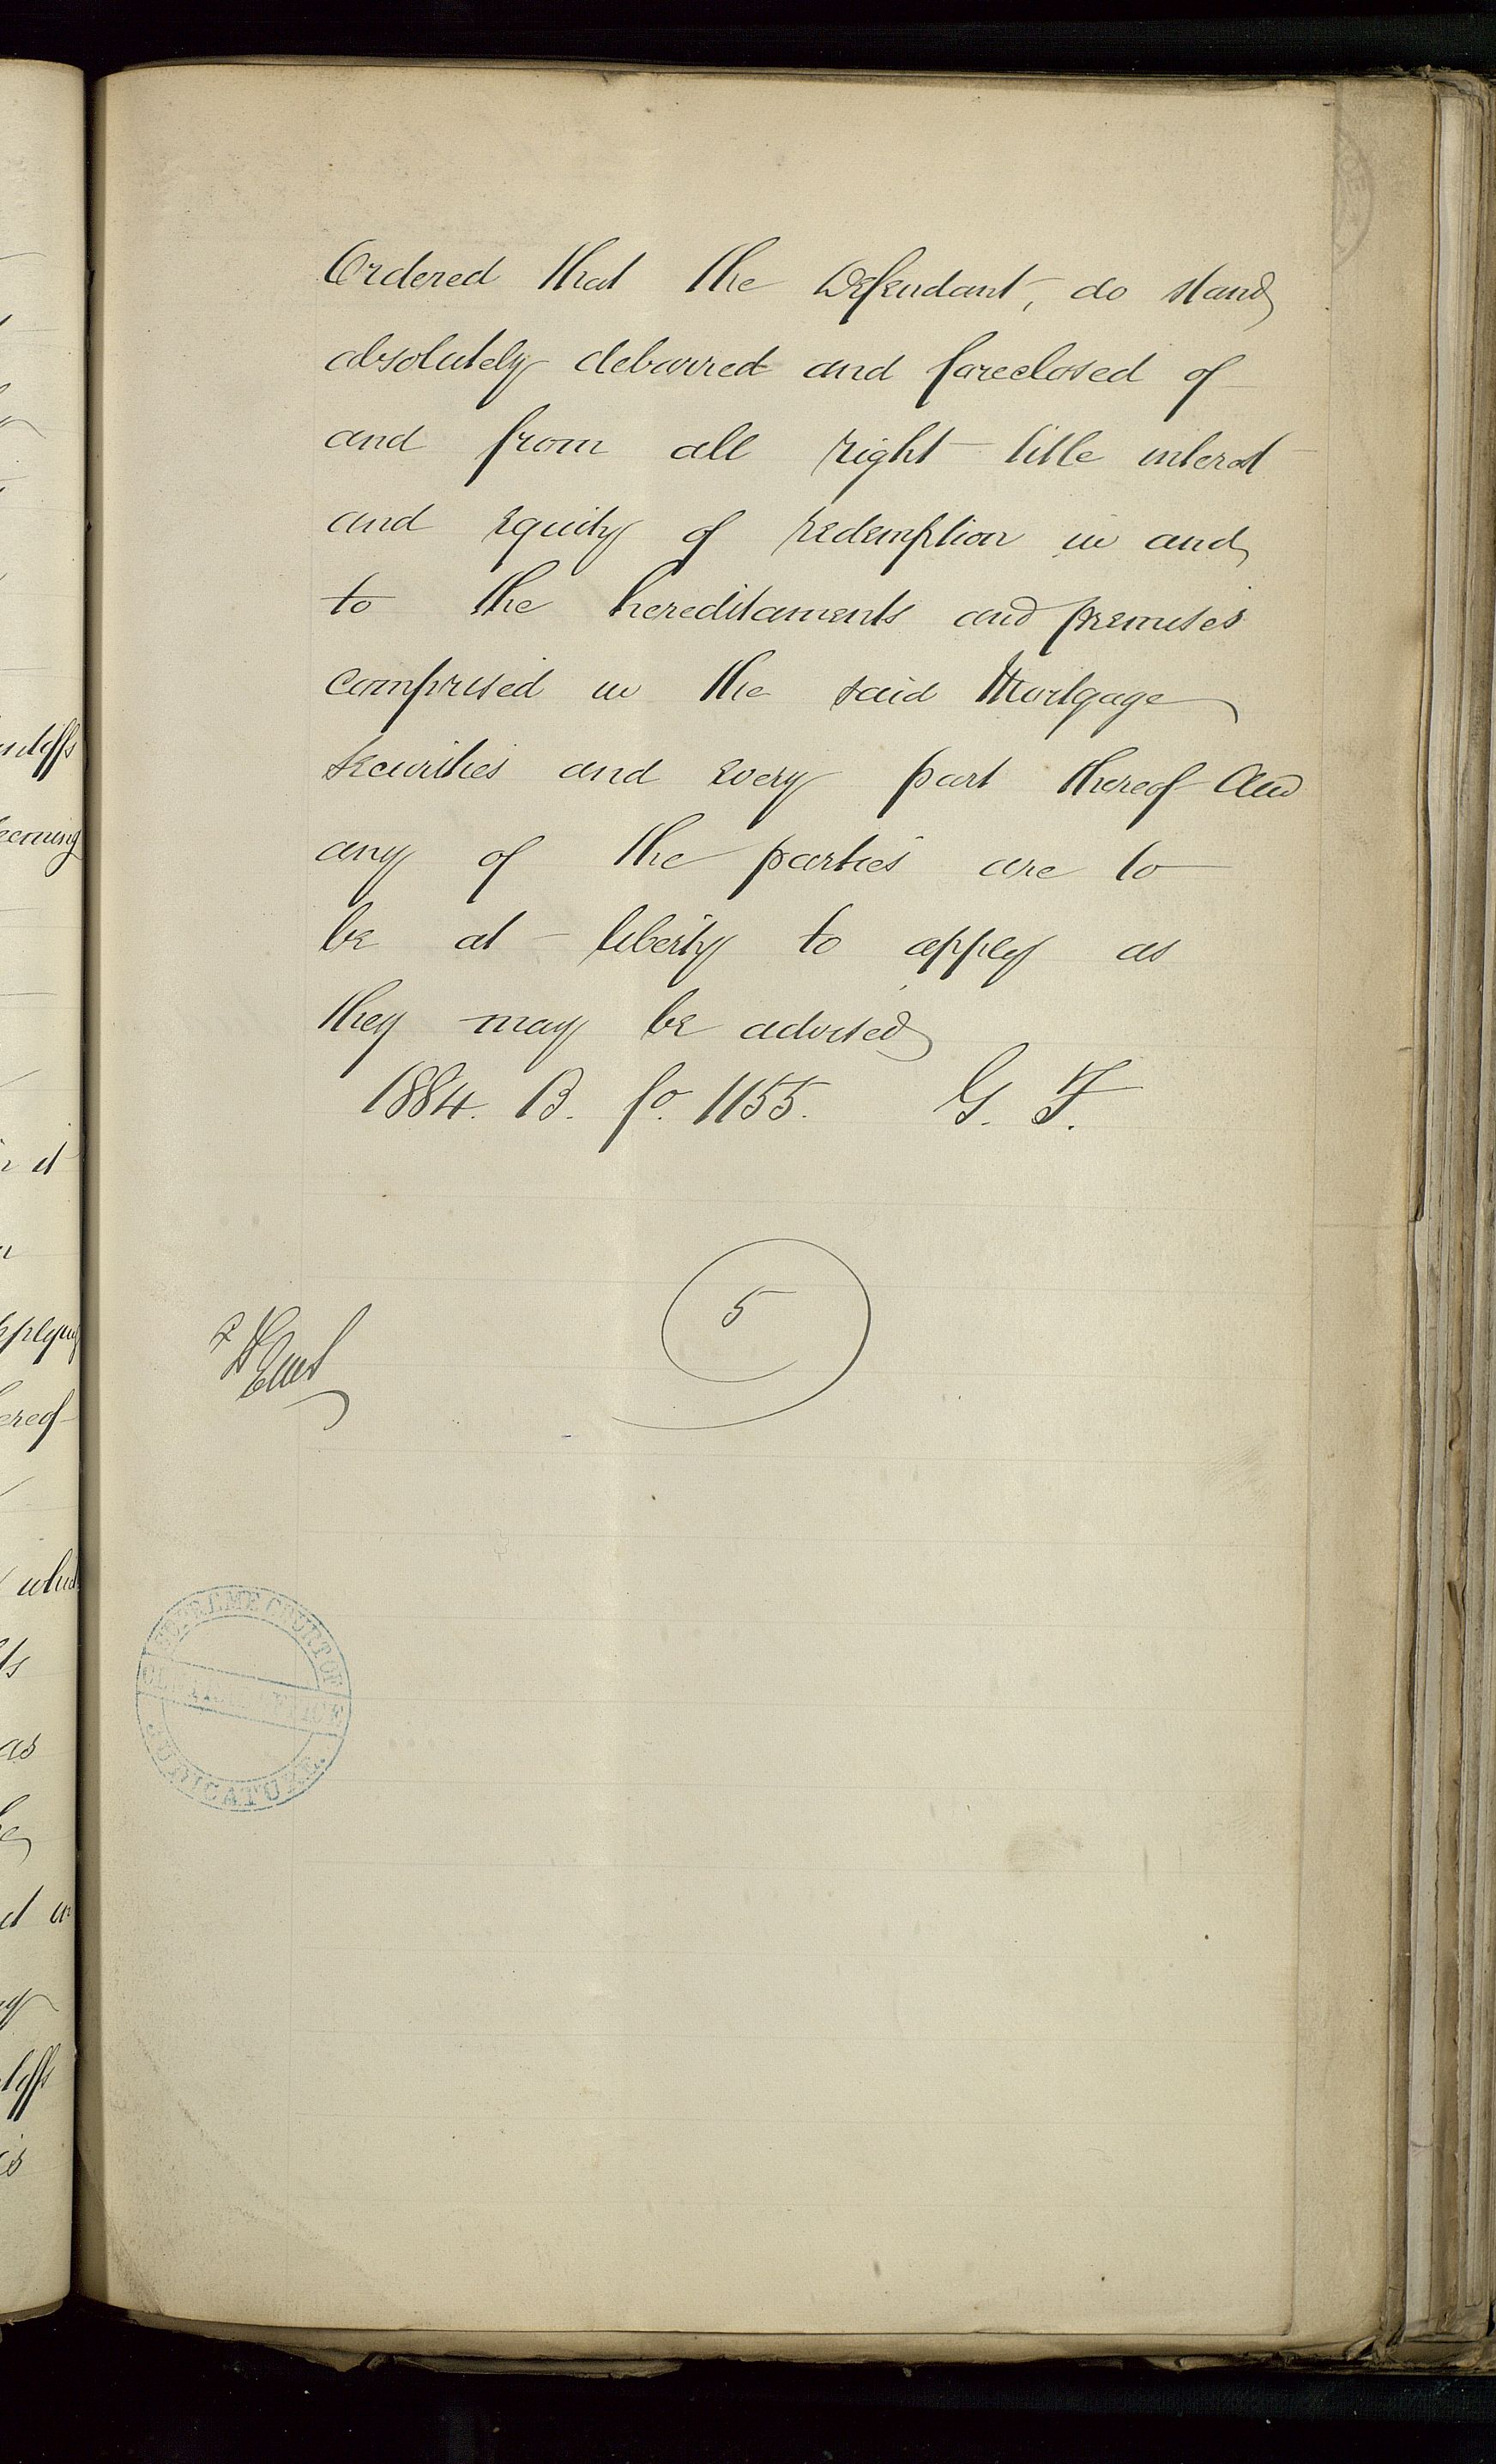 Ordered that the Defendant, do stand
absolutely debarred and foreclosed of
and from all right title interest
and equity of redemption in and
to the hereditaments and premises
comprised in the said Mortgage
Securities and every part thereof And
any of the parties are to
be at liberty to apply as
they may be advised
1884. B. fo. 1155. G. F.
5
SUPREME COURT OF
JUDICATURE